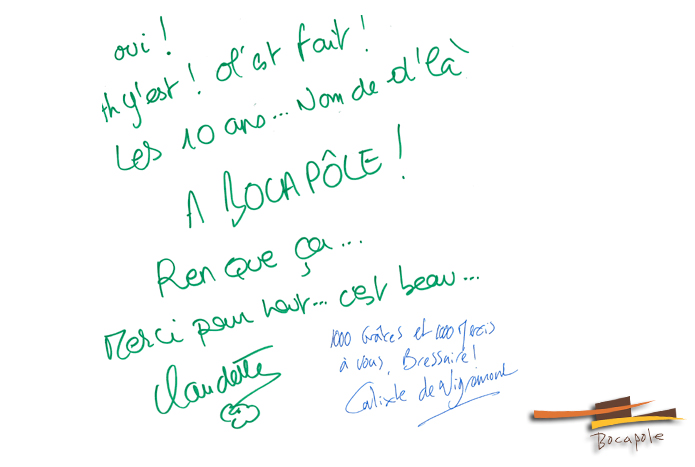 oui !
thy'est ! d'est fait !
Les 10 ans... Nom de d'là
A BOCAPÔLE !
Ren que ça...
Merci pour tout... c'est beau...
Claudette
1000 Grâces et 1000 Mercis
à vous, Bressuire !
Calixte de Nigremont
Bocapole